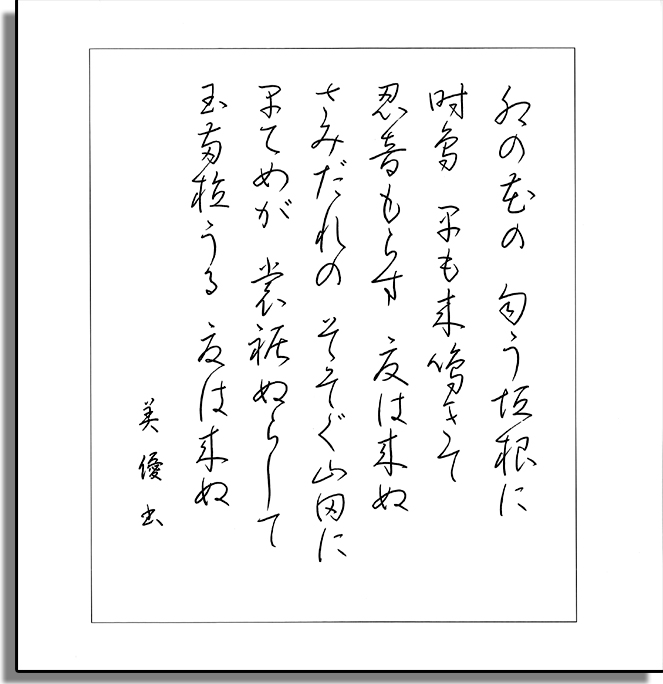 卯の花の 匂う垣根に
時鳥 早も来鳴きて
忍音もらす 夏は来ぬ
さみだれの そそぐ山田に
早乙女が 裳裾ぬらして
玉苗植うる 夏は来ぬ
美優書